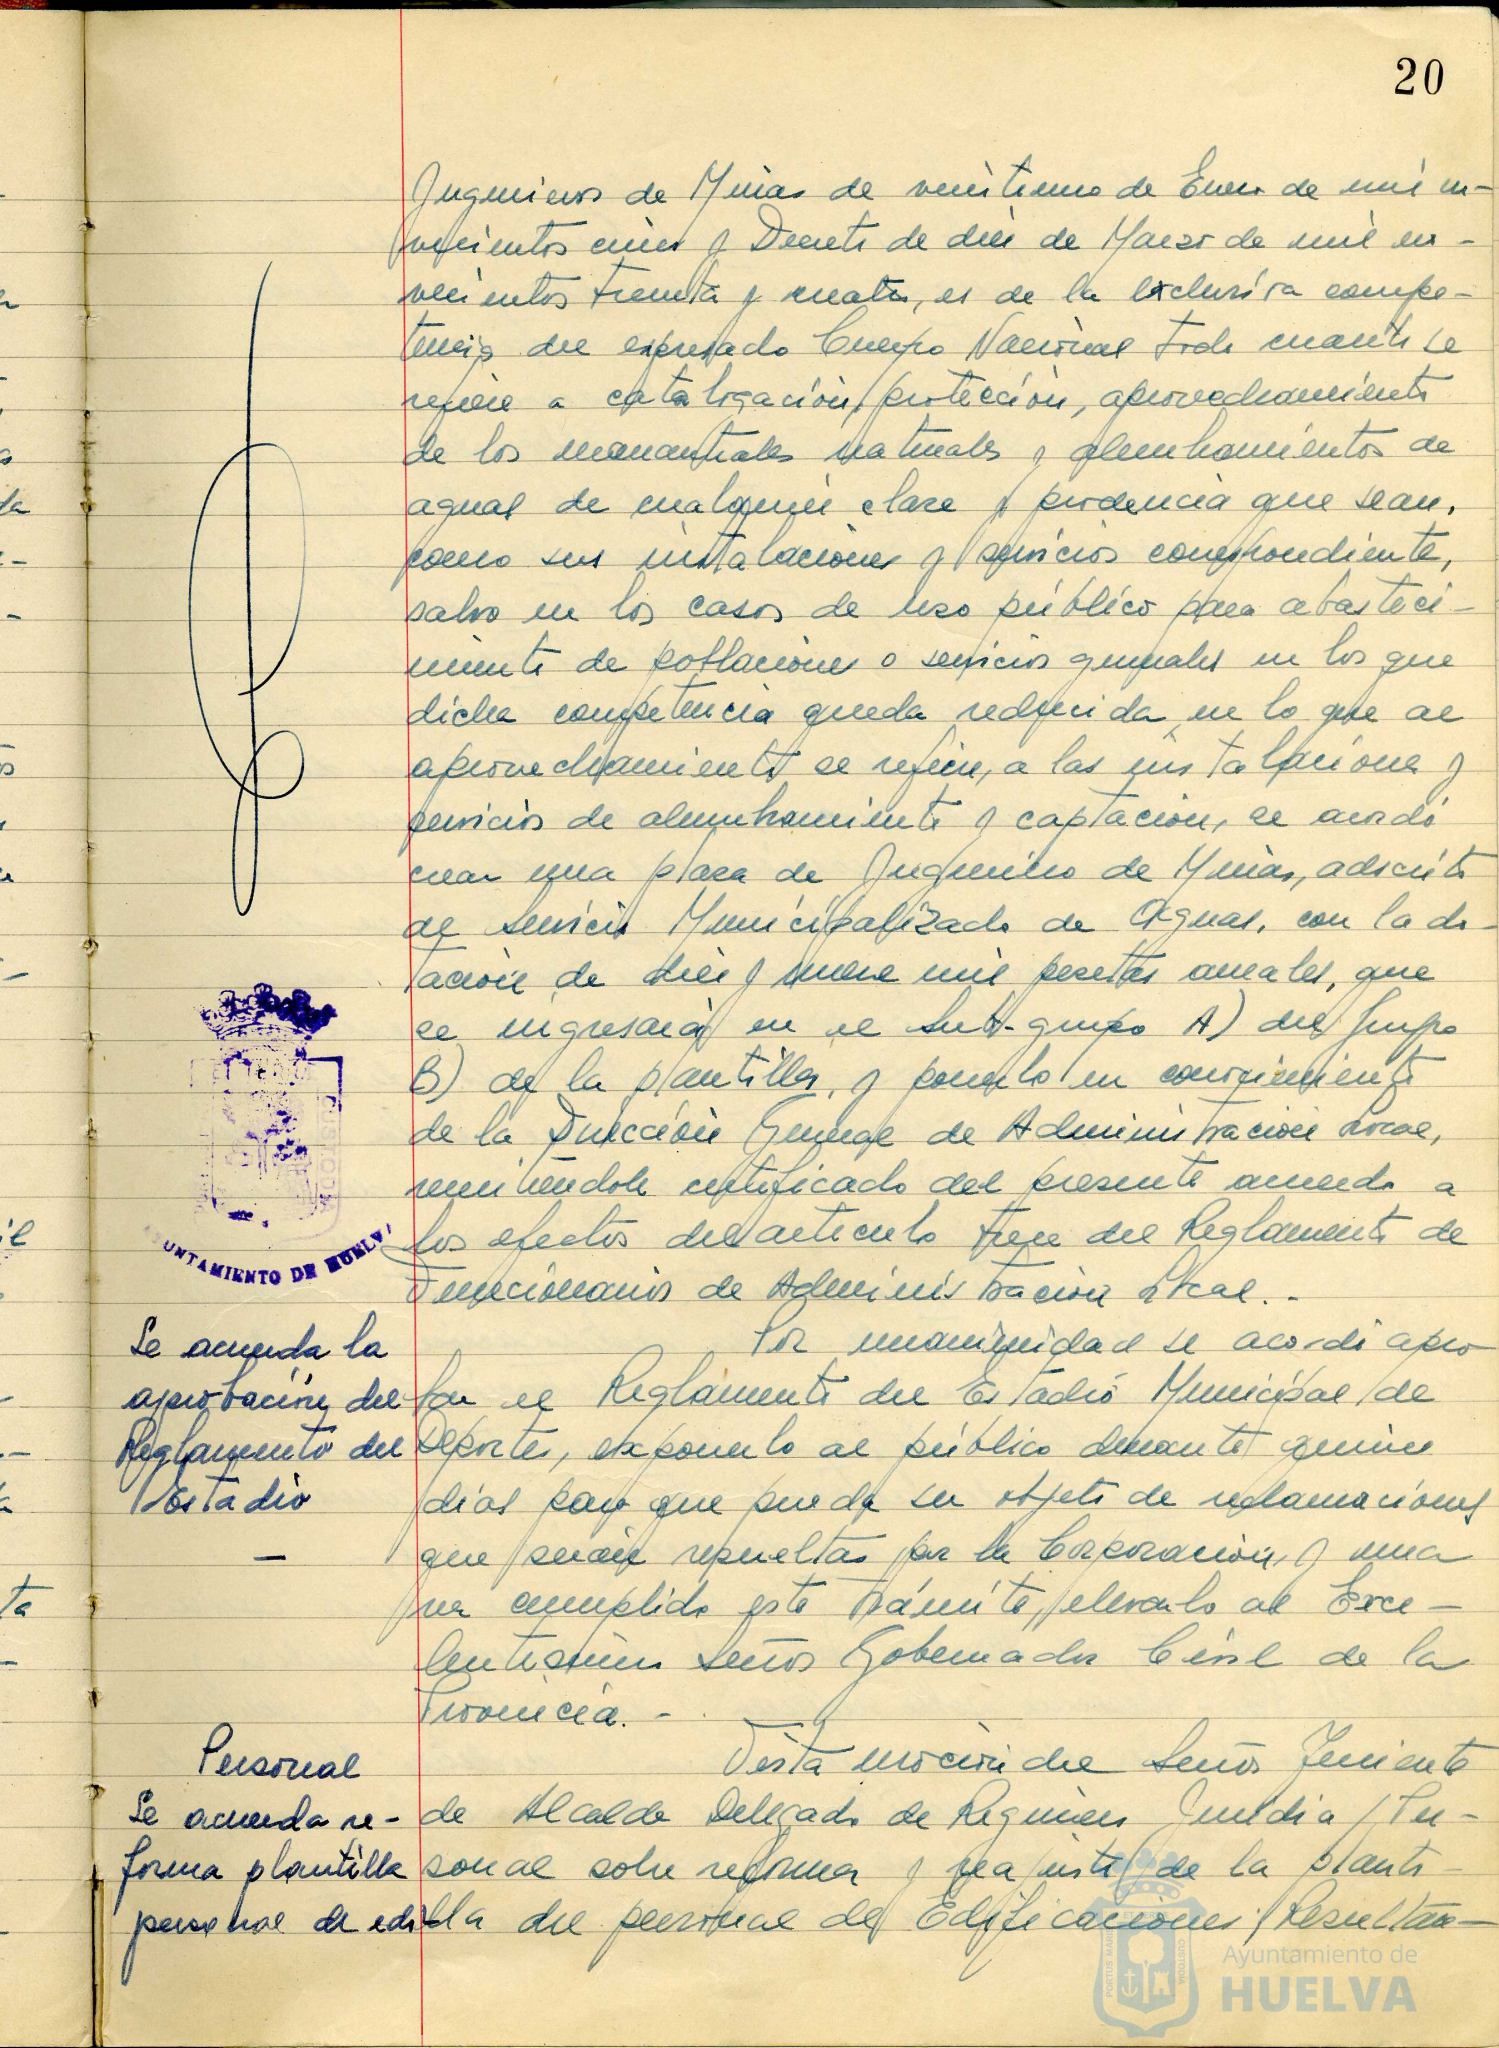 20
Ingenieros de Minas de veintiuno de Enero de mil no-
vecientos cinco y Decreto de diez de Marzo de mil no-
vecientos treinta y cuatro, es de la exclusiva compe-
tencia del expresado Cuerpo Nacional todo cuanto se
refiere a catalogación, protección, aprovechamiento
de los manantiales naturales y alumbramientos de
aguas de cualquier clase y prodencia que sean,
como sus instalaciones y servicios correspondiente,
salvo en los casos de uso público para abasteci-
miento de poblaciones o servicios generales en los que
dicha competencia queda reducida, en lo que al
aprovechamiento se refiere, a las instalaciones y
servicios de alumbramiento y captación, se acordó
crear una plaza de Ingeniero de Minas, adscrita
al Servicio Municipalizado de Aguas, con la do-
tación de diez y nueve mil pesetas anuales, que
se ingresará en el Sub-grupo A) del Grupo
B) de la plantilla, y ponerlo en conocimiento
de la Dirección General de Administración Local,
remitiéndole certificado del presente acuerdo a
los efectos del artículo trece del Reglamento de
Funcionarios de Administración Local.-
AYUNTAMIENTO DE HUELVA
Se acuerda la
aprobación del
Reglamento del
Estadio
Por unanimidad se acordó apro
bar el Reglamento del Estadio Municipal de
Deportes, exponerlo al público durante quince
días para que pueda ser objeto de reclamaciones
que serán resueltas por la Corporación, y una
vez cumplido este trámite, elevarlo al Exce-
lentísimo Señor Gobernador Civil de la
Provincia.-
Personal
Se acuerda re-
forma plantilla
personal de edi
Vista moción del Señor Teniente
de Alcalde Delegado de Régimen Jurídico y Per-
sonal sobre reforma y reajuste de la planti-
lla del personal de Edificaciones; Resultan-
PORTUS MARIS
CUSTODIA
Ayuntamiento de
HUELVA